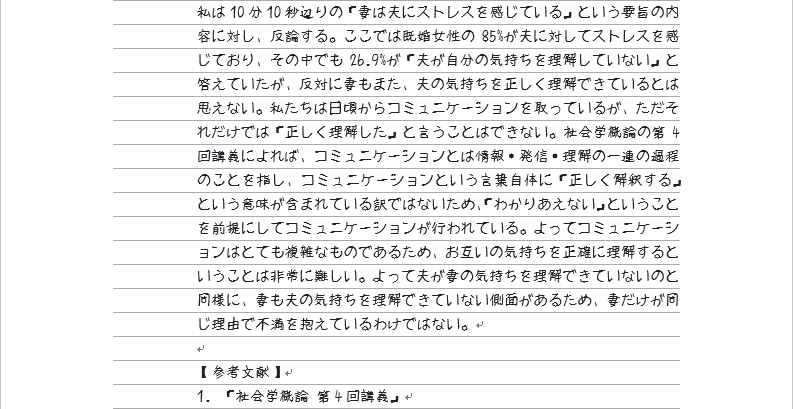 私は 10 分 10 秒辺りの『妻は夫にストレスを感じている』という要旨の内
容に対し、反論する。ここでは既婚女性の 85%が夫に対してストレスを感
じており、その中でも 26.9%が『夫が自分の気持ちを理解していない』と
答えていたが、反対に妻もまた、夫の気持ちを正しく理解できているとは
思えない。私たちは日頃からコミュニケーションを取っているが、ただそ
れだけでは『正しく理解した』と言うことはできない。社会学概論の第 4
回講義によれば、コミュニケーションとは情報・発信・理解の一連の過程
のことを指し、コミュニケーションという言葉自体に『正しく解釈する』
という意味が含まれている訳ではないため、『わかりあえない』ということ
を前提にしてコミュニケーションが行われている。よってコミュニケーシ
ョンはとても複雑なものであるため、お互いの気持ちを正確に理解すると
いうことは非常に難しい。よって夫が妻の気持ちを理解できていないのと
同様に、妻も夫の気持ちを理解できていない側面があるため、妻だけが同
じ理由で不満を抱えているわけではない。
【参考文献】
1. 『社会学概論 第 4 回講義』